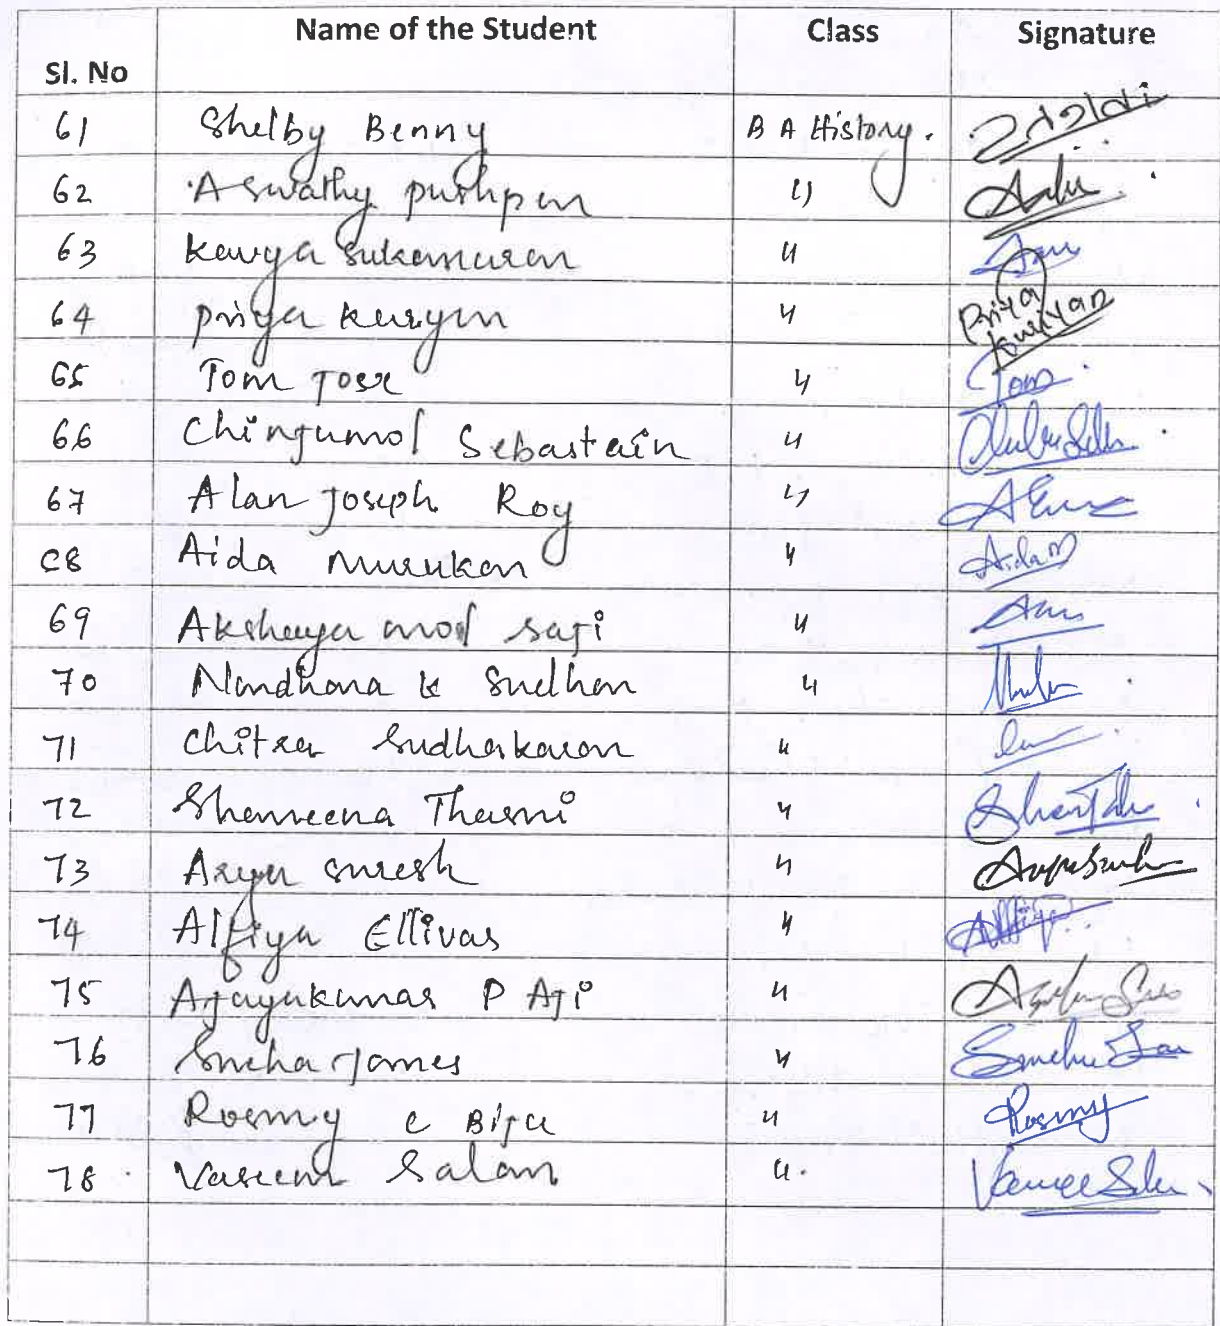 Name of the Student Class Signature
Sl. No
61 Shelby Benny B A History.
62 Aswathy pushpan "
63 Kavya Sukamaran "
64 priya kuryan " Priya kuriyan
65 Tom Jose " Tom
66 Chingumol Sebastain "
67 Alan Joseph Roy "
68 Aida Murukan " Aida M
69 Akshaya mol saji "
70 Nandhana k Sudhan "
71 Chitra Sudhakaran "
72 Shameena Thasni "
73 Arya suresh "
74 Alfiya Ellivas "
75 Ajayakumar P Aji "
76 Sneha James "
77 Rosmy c Biju " Rosmy
78 Vaseem Salam "